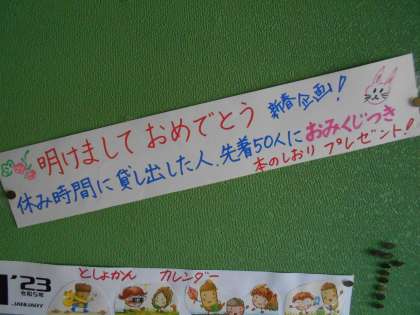 明けまして おめでとう 新春企画!
休み時間に貸し出した人、先着50人におみくじつき
本のしおり プレゼント!!
'23
令和5年
JANUARY
としょかん カレンダー